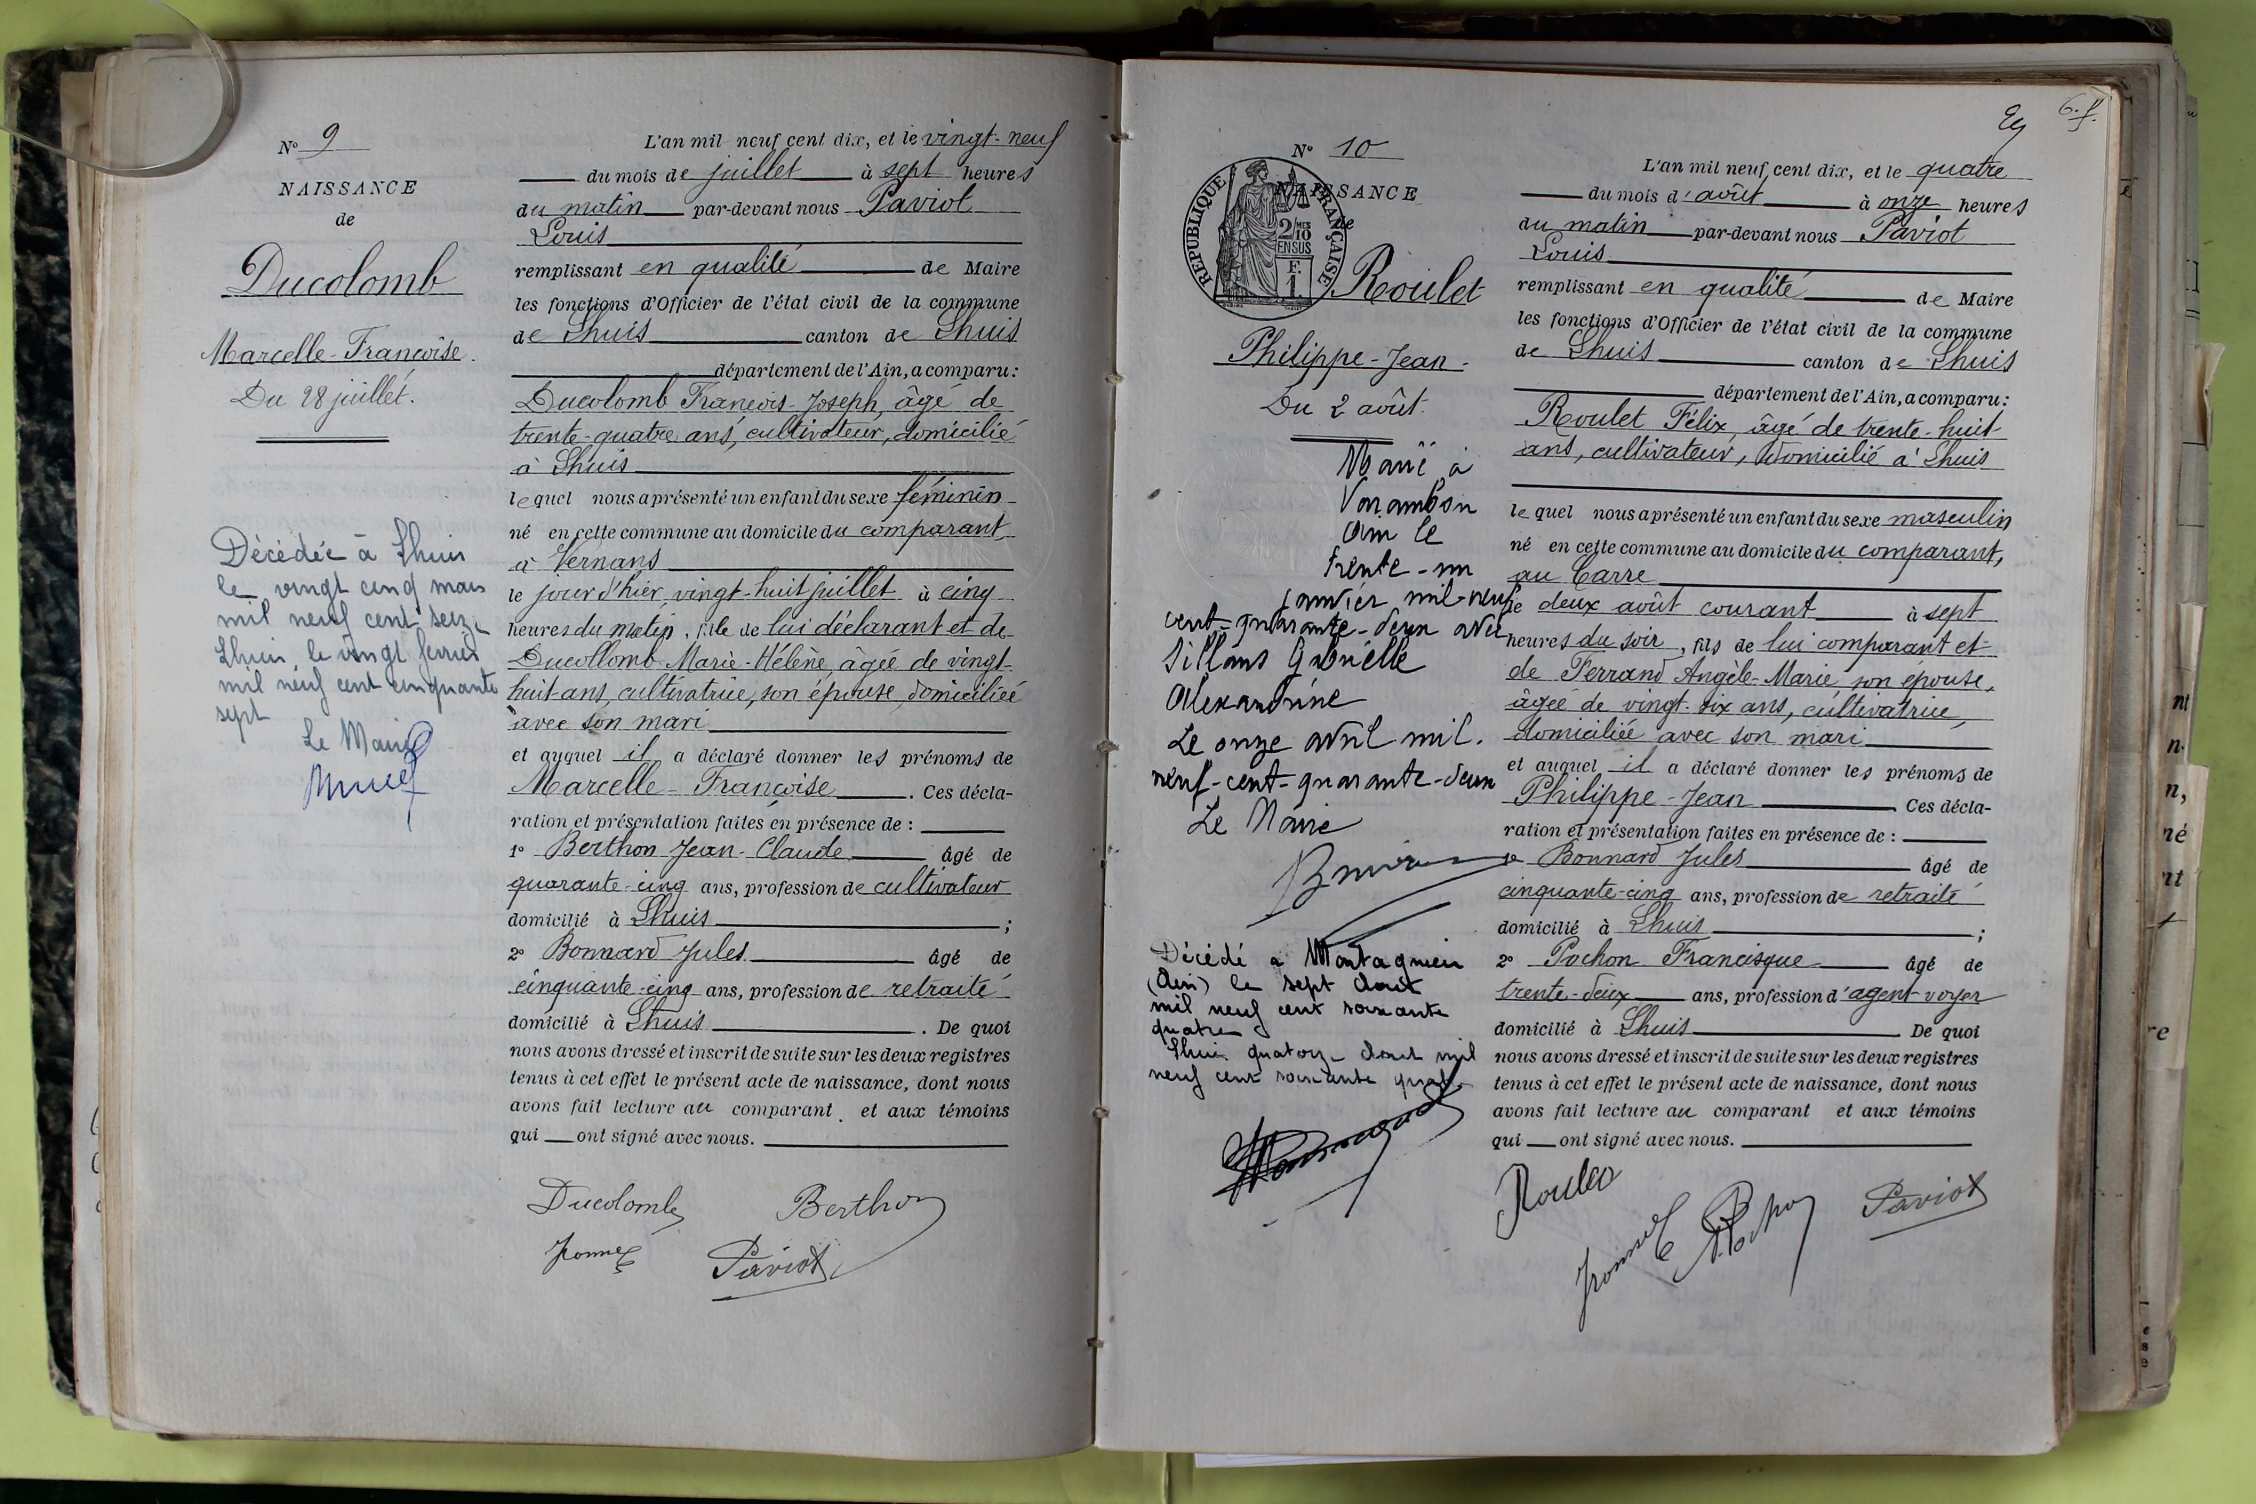 N° 9
NAISSANCE
de
Ducolomb
Marcelle-Françoise.
Du 28 juillet.
Décédée à Lhuis
le vingt cinq mars
mil neuf cent seize
Lhuis, le vingt ferrier
mil neuf cent cinquante
sept
Le Maire
L'an mil neuf cent dix, et le vingt-neuf
du mois de juillet à sept heures
du matin par-devant nous Paviot
Louis
remplissant en qualité de Maire
les fonctions d'Officier de l'état civil de la commune
de Lhuis canton de Lhuis
département de l'Ain, a comparu:
Ducolomb François-Joseph, âgé de
trente-quatre ans, cultivateur, domicilié
à Lhuis
lequel nous a présenté un enfant du sexe féminin
né en cette commune au domicile du comparant,
à Vernans
le jour d'hier, vingt-huit juillet à cinq
heures du matin, fille de lui déclarant et de
Ducollomb Marie-Hélène, âgée de vingt-
huit ans, cultivatrice, son épouse, domiciliée
avec son mari
et auquel il a déclaré donner les prénoms de
Marcelle-Françoise. Ces décla-
ration et présentation faites en présence de :
1° Berthon Jean-Claude âgé de
quarante-cinq ans, profession de cultivateur
domicilié à Lhuis ;
2° Bonnard Jules âgé de
cinquante-cinq ans, profession de retraité
domicilié à Lhuis. De quoi
nous avons dressé et inscrit de suite sur les deux registres
tenus à cet effet le présent acte de naissance, dont nous
avons fait lecture au comparant. et aux témoins
qui ont signé avec nous.
Ducolomb Berthon
Paviot
6. f.
N° 10
NAISSANCE
de
RÉPUBLIQUE FRANÇAISE
2/10 MES
EN SUS
F.
1.
Roulet
Philippe-Jean-
Du 2 août.
Marié à
Varambon
Ain le
trente-un
janvier mil-neuf
cent-quarante-deux avec
Sillans Gabrielle
Alexandrine
Le onze avril mil.
neuf-cent-quarante-deux
Le Maire
Décédé à Montagnieu
(Ain) le sept Aout
mil neuf cent soixante
quatre
Lhuis quatorze Aout mil
neuf cent soixante quatre
L'an mil neuf cent dix, et le quatre
du mois d'août à onze heures
du matin par-devant nous Paviot
Louis
remplissant en qualité de Maire
les fonctions d'Officier de l'état civil de la commune
de Lhuis canton de Lhuis
département de l'Ain, a comparu:
Roulet Félix, âgé de trente-huit
ans, cultivateur, domicilié à Lhuis
lequel nous a présenté un enfant du sexe masculin
né en cette commune au domicile du comparant,
au Carre
le deux août courant à sept
heures du soir, fils de lui comparant et
de Ferrand Angèle-Marie son épouse,
âgée de vingt-six ans, cultivatrice,
domiciliée avec son mari
et auquel il a déclaré donner les prénoms de
Philippe-Jean Ces décla-
ration et présentation faites en présence de :
1° Bonnard Jules âgé de
cinquante-cinq ans, profession de retraité
domicilié à Lhuis ;
2° Pochon Francisque âgé de
trente-deux ans, profession d'agent-voyer
domicilié à Lhuis De quoi
nous avons dressé et inscrit de suite sur les deux registres
tenus à cet effet le présent acte de naissance, dont nous
avons fait lecture au comparant et aux témoins
qui ont signé avec nous.
Roulet
Pochon Paviot